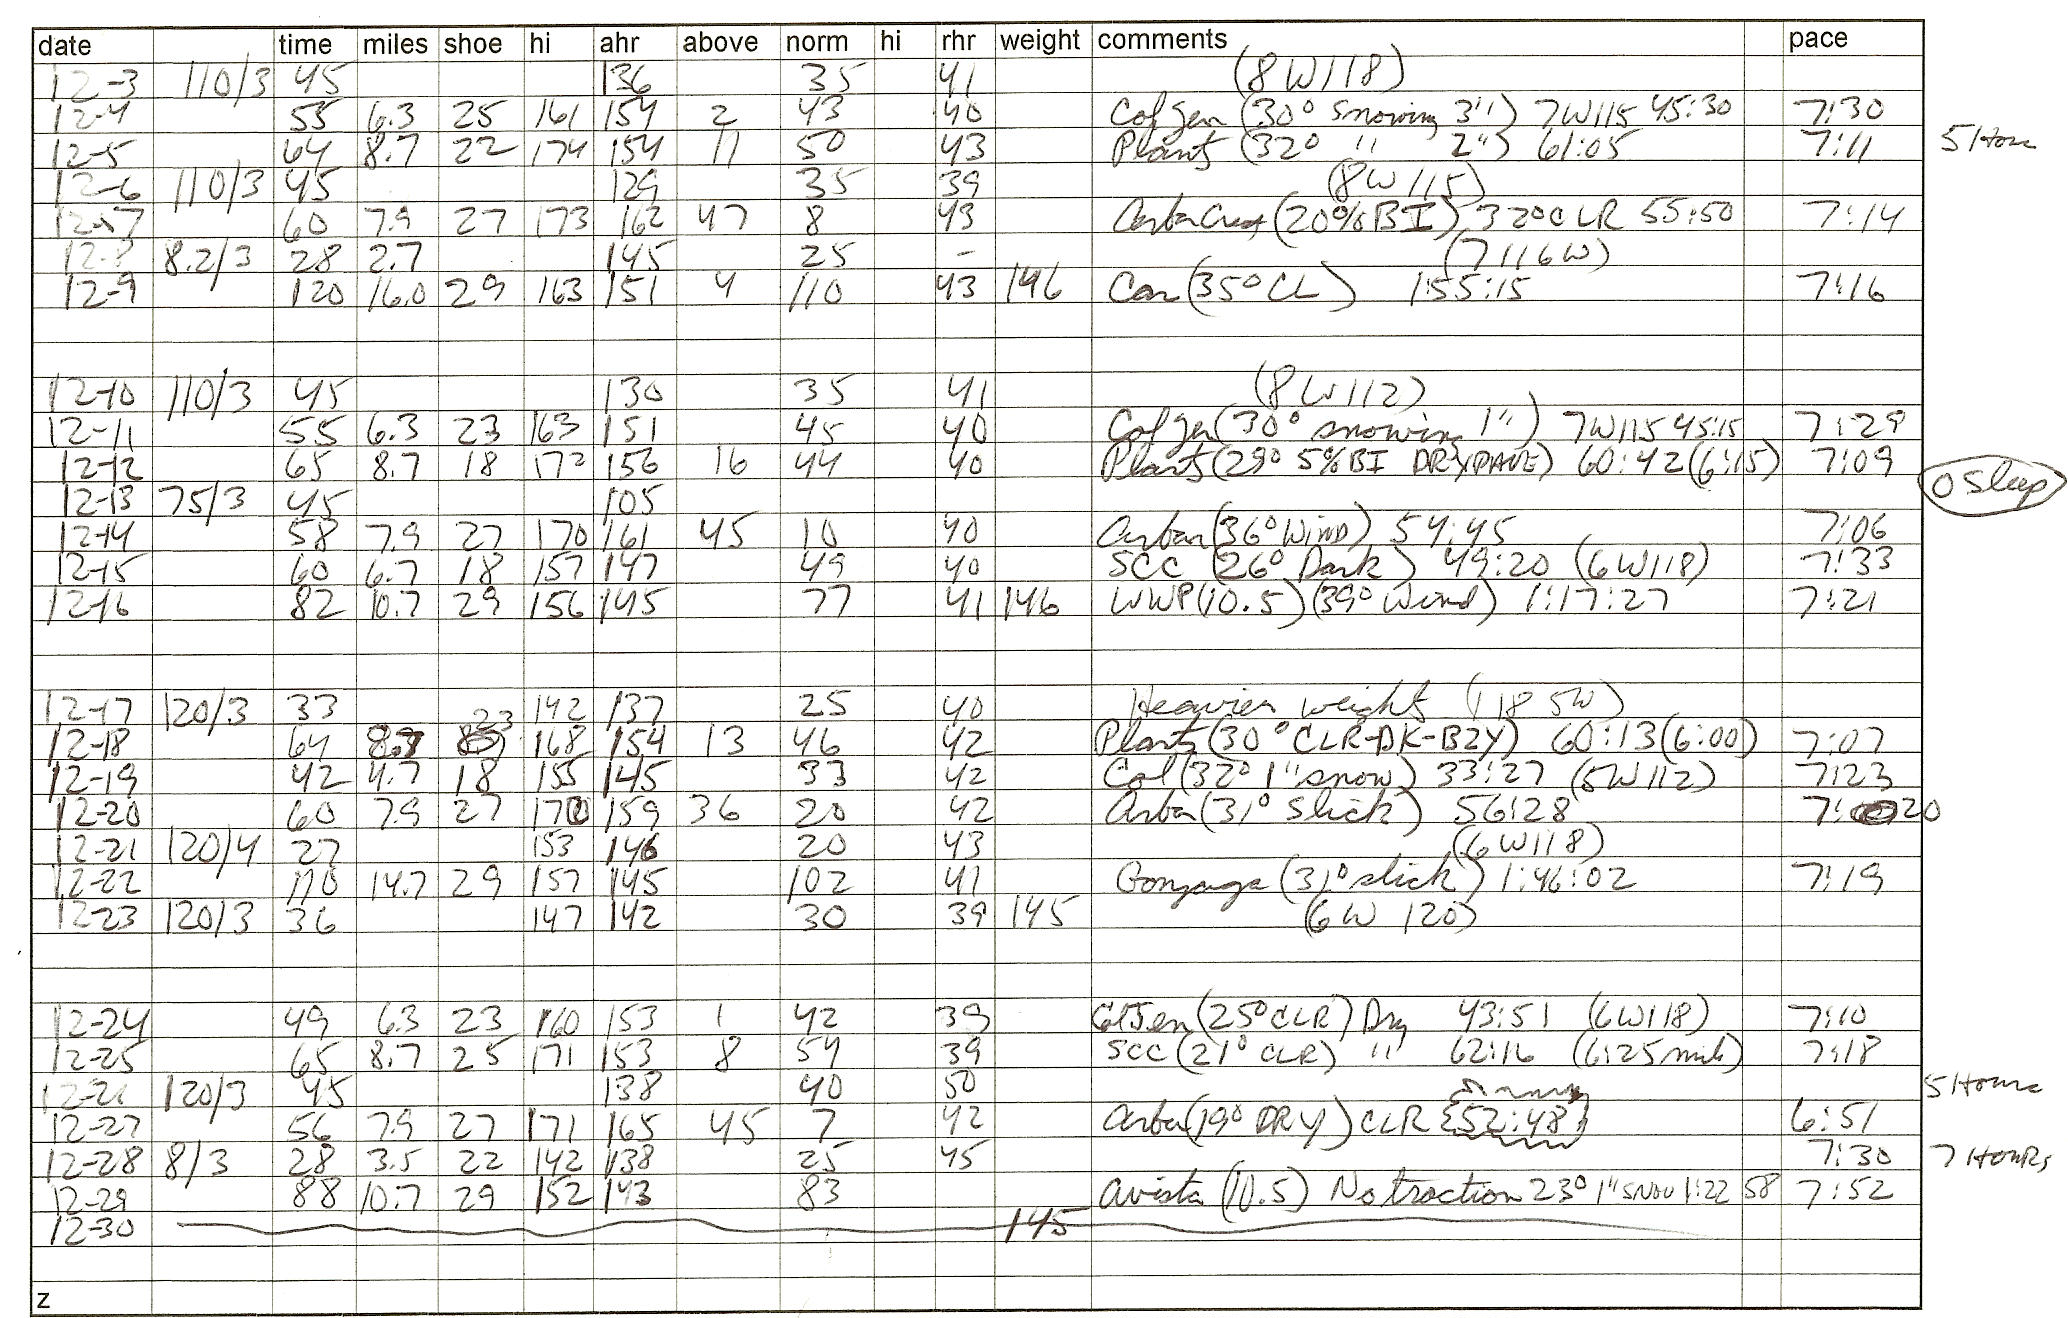 date time miles shoe hi ahr above norm hi rhr weight comments pace
12-3 110/3 45 136 35 41 (8W118)
12-4 55 6.3 25 161 154 2 43 40 ColJen (30° Snowing 3") 7W115 45:30 7:30
12-5 64 8.7 22 174 154 11 50 43 Plant (32° " 2") 61:05 7:11 5 Hour
12-6 110/3 45 129 35 39 (8W115)
12-7 60 7.9 27 173 162 47 8 43 (20%BI) 32°CLR 55:50 7:14
12-8 8.2/3 28 2.7 145 25 - (7116W)
12-9 120 16.0 29 163 151 4 110 43 146 (35°CL) 1:55:15 7:16
12-10 110/3 45 130 35 41 (8W112)
12-11 55 6.3 23 163 151 45 40 ColJen (30° snowing 1") 7W115 45:15 7:29
12-12 65 8.7 18 172 156 16 44 40 Plant (29° 5%BI DRYPAVE) 60:42 (6:15) 7:09
12-13 75/3 45 105 0 Sleep
12-14 58 7.9 27 170 161 45 10 40 Arbor (36° Wind) 54:45 7:06
12-15 60 6.7 18 157 147 49 40 SCC (26° Dark) 49:20 (6W118) 7:33
12-16 82 10.7 29 156 145 77 41 146 WWP(10.5) (39° Wind) 1:17:27 7:21
12-17 120/3 33 142 137 25 40 Heavier weight (118 5W)
12-18 64 8.7 23 168 154 13 46 42 Plant (30° CLR-DK-BZY) 60:13 (6:00) 7:07
12-19 42 4.7 18 155 145 33 42 Col (32° 1" snow) 33:27 (5W112) 7:23
12-20 60 7.9 27 170 159 36 20 42 Arbor (31° Slick) 56:28 7:20
12-21 120/4 27 153 146 20 43 (6W118)
12-22 110 14.7 29 157 145 102 41 Gonzaga (31° slick) 1:46:02 7:19
12-23 120/3 36 147 142 30 39 145 (6W 120)
12-24 49 6.3 23 160 153 1 42 39 ColJen (25° CLR) Dry 43:51 (6W118) 7:10
12-25 65 8.7 25 171 153 8 54 39 SCC (21° CLR) " 62:16 (6:25 mile) 7:18
12-26 120/3 45 138 40 50 5 Hours
12-27 56 7.9 27 171 165 45 7 42 Arbor (19° DRY) CLR 52:48 6:51
12-28 8/3 28 3.5 22 142 138 25 45 7:30 7 HOURS
12-29 88 10.7 29 152 143 83 Avista (10.5) No traction 23° 1" SNOW 1:22 58 7:52
12-30 145
z